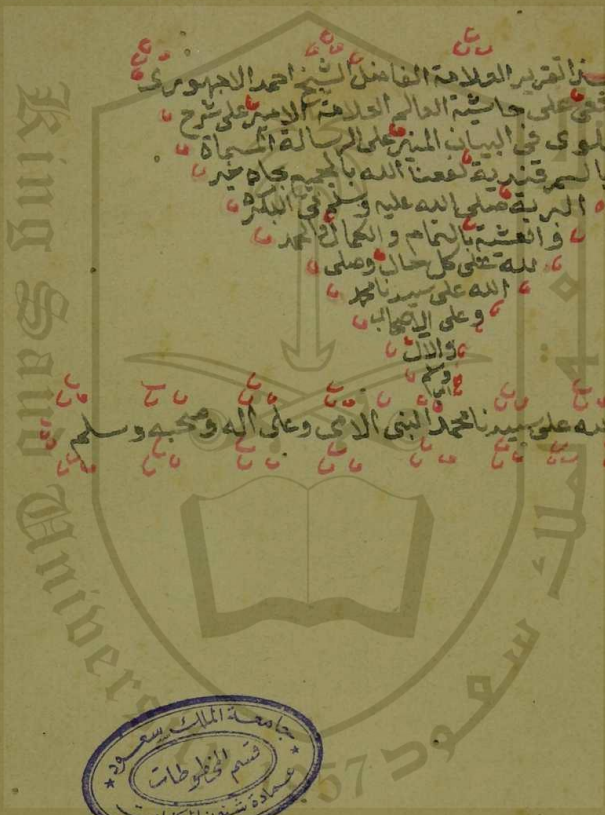 التقرير العلامة الفاضل الشيخ احمد الاجهورى
على حاشية العالم العلامة الامير على شرح
فى البيان المنير على الرسالة المسماة
بالسمرقندية نفعنا الله بالجميع بجاه خير
البرية صلى الله عليه وسلم فى البكرة
والعشية بالتمام والكمال والحمد
لله على كل حال وصلى
الله على سيدنا محمد
وعلى الاصحاب
والال
على سيدنا محمد البنى الامى وعلى آله وصحبه وسلم
جامعة الملك سعود
قسم المخطوطات
King Saud University
جامعة الملك سعود
1957